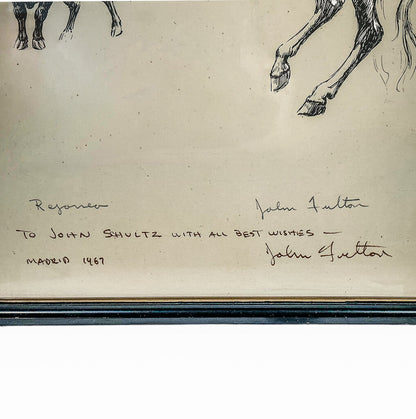 Rejoneo John Fulton
TO JOHN SHULTZ WITH ALL BEST WISHES —
MADRID 1967 John Fulton